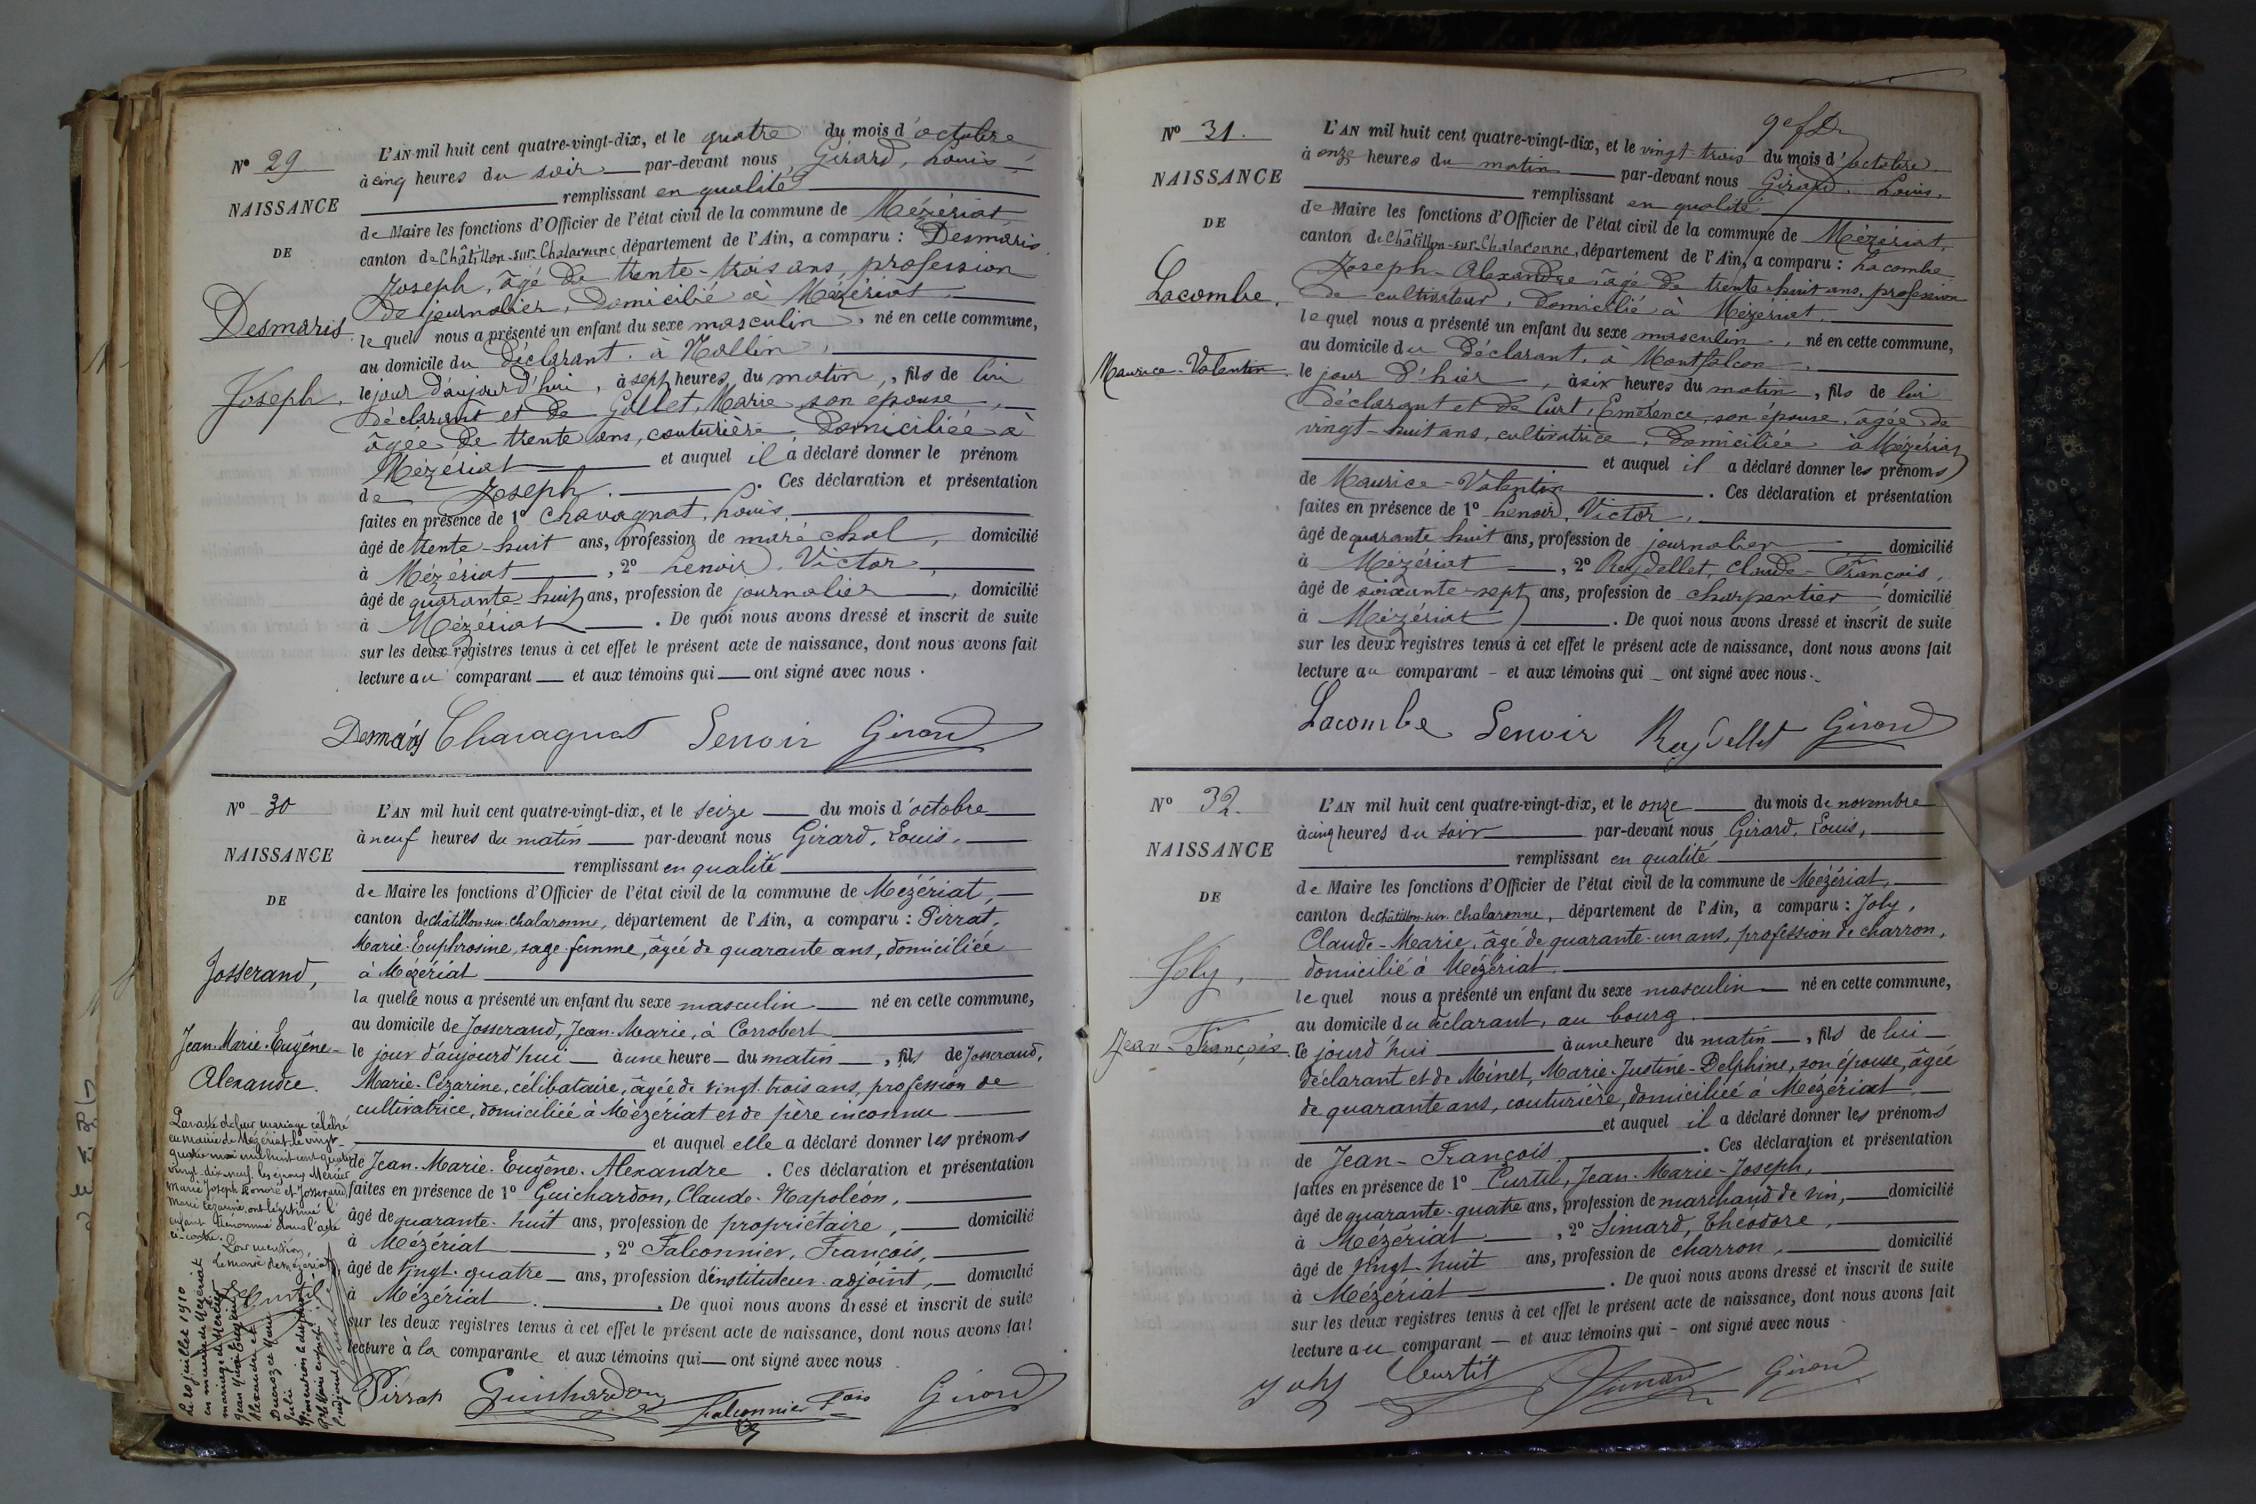 N° 29
NAISSANCE
DE
Desmaris
Joseph.
L'AN mil huit cent quatre-vingt-dix, et le quatre du mois d'octobre
à cinq heures du soir par-devant nous Girard, Louis,
remplissant en qualité
de Maire les fonctions d'Officier de l'état civil de la commune de Mézériat,
canton de Châtillon-sur-Chalaronne département de l'Ain, a comparu : Desmaris
Joseph, âgé de trente-trois ans, profession
de journalier, domicilié à Mézériat,
le quel nous a présenté un enfant du sexe masculin, né en cette commune,
au domicile du déclarant, à
le jour d'aujourd'hui, à sept heures du matin, fils de lui
déclarant et de Gollet, Marie son épouse,
âgée de trente ans, couturière domiciliée à
Mézériat et auquel il a déclaré donner le prénom
de Joseph. Ces déclaration et présentation
faites en présence de 1° Chavagnat, Louis,
âgé de trente-huit ans, profession de maréchal, domicilié
à Mézériat, 2° Lenoir, Victor,
âgé de quarante-huit ans, profession de journalier, domicilié
à Mézériat. De quoi nous avons dressé et inscrit de suite
sur les deux registres tenus à cet effet le présent acte de naissance, dont nous avons fait
lecture au comparant et aux témoins qui ont signé avec nous.
Desmaris Chavagnat Lenoir Girard
N° 30
NAISSANCE
DE
Josserand,
Jean-Marie-Eugène-
Alexandre.
L'AN mil huit cent quatre-vingt-dix, et le seize du mois d'octobre
à neuf heures du matin par-devant nous Girard, Louis,
remplissant en qualité
de Maire les fonctions d'Officier de l'état civil de la commune de Mézériat,
canton de Châtillon-sur-Chalaronne, département de l'Ain, a comparu : Pirrat,
Marie-Euphrosine, sage-femme, âgée de quarante ans, domiciliée
à Mézériat
la quelle nous a présenté un enfant du sexe masculin né en cette commune,
au domicile de Josserand, Jean-Marie, à Corrobert
le jour d'aujourd'hui à une heure du matin, fils de Josserand,
Marie-Cézarine, célibataire, âgée de vingt-trois ans, profession de
cultivatrice, domiciliée à Mézériat et de père inconnu
et auquel elle a déclaré donner les prénoms
de Jean-Marie-Eugène-Alexandre. Ces déclaration et présentation
faites en présence de 1° Guichardon, Claude-Napoléon,
âgé de quarante-huit ans, profession de propriétaire, domicilié
à Mézériat, 2° Falconnier, François,
âgé de vingt-quatre ans, profession d'instituteur-adjoint, domicilié
à Mézériat. De quoi nous avons dressé et inscrit de suite
sur les deux registres tenus à cet effet le présent acte de naissance, dont nous avons fait
lecture à la comparante et aux témoins qui ont signé avec nous.
Pirrat Guichardon Falconnier Fçois Girard
Par acte de leur mariage célébré
en mairie de Mézériat le vingt-
quatre mai mil huit cent quatre
vingt-dix-neuf, les époux Mercier
Marie Joseph Honoré et Josserand
Marie Cézarine, ont légitimé l'
enfant dénommé dans l'acte
ci-contre.
Pour mention,
Le maire de Mézériat,
Curtil
Le 20 juillet 1910
en mairie de Mézériat
mariage de Mercier
Jean Marie Eugène
Alexandre et
N° 31.
NAISSANCE
DE
Lacombe,
Maurice-Valentin.
L'AN mil huit cent quatre-vingt-dix, et le vingt-trois du mois d'octobre
à onze heures du matin par-devant nous Girard, Louis,
remplissant en qualité
de Maire les fonctions d'Officier de l'état civil de la commune de Mézériat,
canton de Châtillon-sur-Chalaronne, département de l'Ain, a comparu : Lacombe
Joseph-Alexandre, âgé de trente-huit ans, profession
de cultivateur, domicilié à Mézériat,
le quel nous a présenté un enfant du sexe masculin, né en cette commune,
au domicile du déclarant, à Montfalcon,
le jour d'hier, à six heures du matin, fils de lui
déclarant et de Curt, Émérence, son épouse, âgée de
vingt-huit ans, cultivatrice, domiciliée à Mézériat
et auquel il a déclaré donner les prénoms
de Maurice-Valentin. Ces déclaration et présentation
faites en présence de 1° Lenoir, Victor,
âgé de quarante-huit ans, profession de journalier domicilié
à Mézériat, 2° Reydellet, Claude-François,
âgé de soixante-sept ans, profession de charpentier domicilié
à Mézériat. De quoi nous avons dressé et inscrit de suite
sur les deux registres tenus à cet effet le présent acte de naissance, dont nous avons fait
lecture au comparant et aux témoins qui ont signé avec nous.
Lacombe Lenoir Reydellet Girard
N° 32.
NAISSANCE
DE
Joly,
Jean-François.
L'AN mil huit cent quatre-vingt-dix, et le onze du mois de novembre
à cinq heures du soir par-devant nous Girard, Louis,
remplissant en qualité
de Maire les fonctions d'Officier de l'état civil de la commune de Mézériat,
canton de Châtillon-sur-Chalaronne, département de l'Ain, a comparu : Joly,
Claude-Marie, âgé de quarante-un ans, profession de charron,
domicilié à Mézériat.
le quel nous a présenté un enfant du sexe masculin né en cette commune,
au domicile du déclarant, au bourg.
le jourd'hui à une heure du matin, fils de lui
déclarant et de Minet, Marie-Justine-Delphine, son épouse, âgée
de quarante ans, couturière, domiciliée à Mézériat
et auquel il a déclaré donner les prénoms
de Jean-François. Ces déclaration et présentation
faites en présence de 1° Curtil, Jean-Marie-Joseph,
âgé de quarante-quatre ans, profession de marchand de vin, domicilié
à Mézériat, 2° Simard, Théodore,
âgé de vingt-huit ans, profession de charron, domicilié
à Mézériat. De quoi nous avons dressé et inscrit de suite
sur les deux registres tenus à cet effet le présent acte de naissance, dont nous avons fait
lecture au comparant et aux témoins qui ont signé avec nous
Joly Curtil Simard Girard